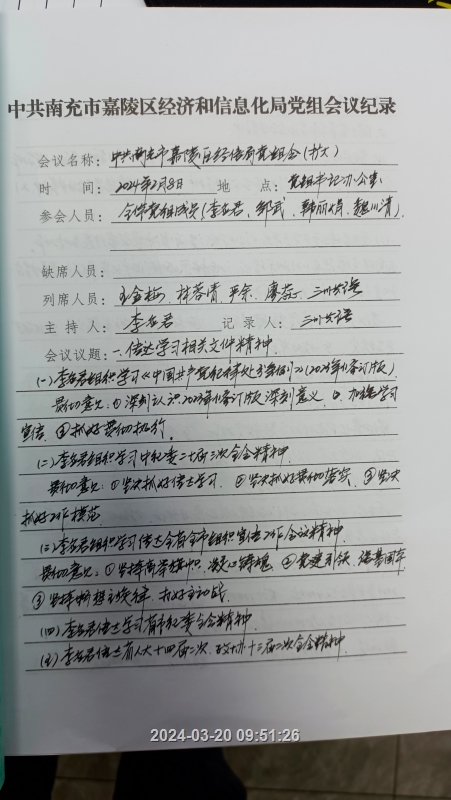 中共南充市嘉陵区经济和信息化局党组会议纪录
会议名称：中共南充市嘉陵区经信局党组会(扩大)
时 间：2024年2月8日 地 点：党组书记办公室
参会人员：全体党组成员(李在君、邹武、韩丽娟、魏川清)
缺席人员：
列席人员：王金梅、林蓉清、平余、廖蕊、
主 持 人：李在君 记 录 人：
会议议题：一、传达学习相关文件精神
(一)李在君组织学习《中国共产党纪律处分条例》(2023年修订版)
贯彻意见：①深刻认识2023年修订版深刻意义 ②加强学习
宣传 ③抓好贯彻执行。
(二)李在君组织学习中纪委二十届三次全会精神
贯彻意见：①坚决抓好传达学习 ②坚决抓好贯彻落实 ③坚决
抓好工作模范
(三)李在君组织学习传达全省全市组织宣传工作会议精神
贯彻意见：①坚持高举旗帜、凝心铸魂 ②党建引领、强基固本
③坚持唱响主旋律、抓好主动战
(四)李在君传达学习省市纪委全会精神
(五)李在君传达省人大十四届二次、政协十三届二次全会精神
2024-03-20 09:51:26